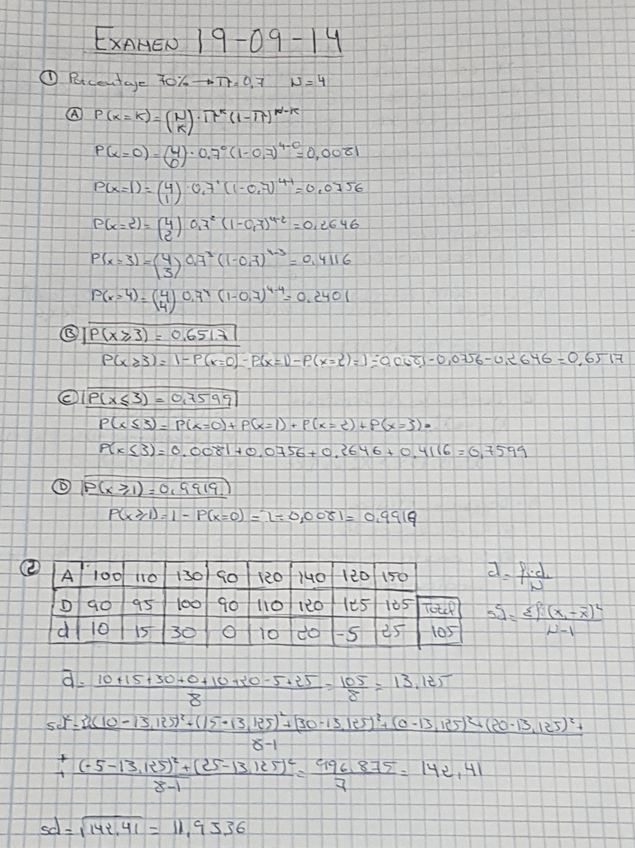 EXAMEN 19-09-14
① Porcentaje 70% → π=0,7 N=4
Ⓐ P(x=K)=(N K)·π^K (1-π)^N-K
P(x=0)=(4 0)·0,7^0 (1-0,7)^4-0=0,0081
P(x=1)=(4 1)·0,7^1 (1-0,7)^4-1=0,0756
P(x=2)=(4 2) 0,7^2 (1-0,7)^4-2=0,2646
P(x=3)=(4 3) 0,7^3 (1-0,7)^4-3=0,4116
P(x=4)=(4 4) 0,7^4 (1-0,7)^4-4=0,2401
Ⓑ P(x≥3)=0,6517
P(x≥3)=1-P(x=0)-P(x=1)-P(x=2)=1-0,0081-0,0756-0,2646=0,6517
Ⓒ P(x≤3)=0,7599
P(x≤3)=P(x=0)+P(x=1)+P(x=2)+P(x=3)=
P(x≤3)=0,0081+0,0756+0,2646+0,4116=0,7599
Ⓓ P(x≥1)=0,9919
P(x≥1)=1-P(x=0)=1-0,0081=0,9919
② A 100 110 130 90 120 140 120 150
D 90 95 100 90 110 120 125 125 Total
d 10 15 30 0 10 20 -5 25 105
N
N-1
d̄= 10+15+30+0+10+20-5+25 / 8 = 105 / 8 = 13,125
(10-13,125)²+(15-13,125)²+(30-13,125)²+(0-13,125)²+(20-13,125)²+
8-1
+ (-5-13,125)²+(25-13,125)² / 8-1 = 996,875 / 7 = 142,41
sd=√142,41 = 11,9336